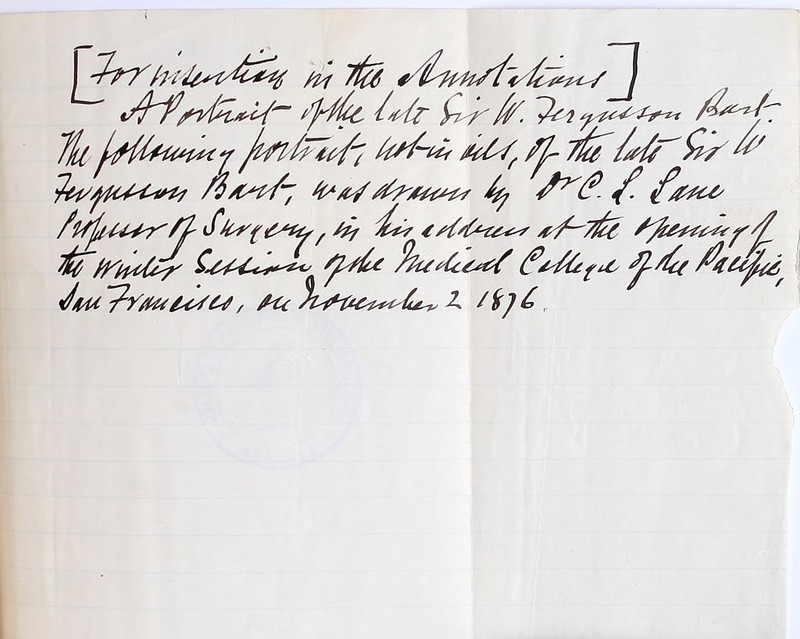 [For insertion in the Annotations]
A Portrait of the late Sir W. Fergusson Bart.
The following portrait, not in oils, of the late Sir W
Fergusson Bart, was drawn by Dr C. L. Lane
Professor of Surgery, in his address at the opening of
the Winter Session of the Medical College of the Pacific,
San Francisco, on November 2 1876.